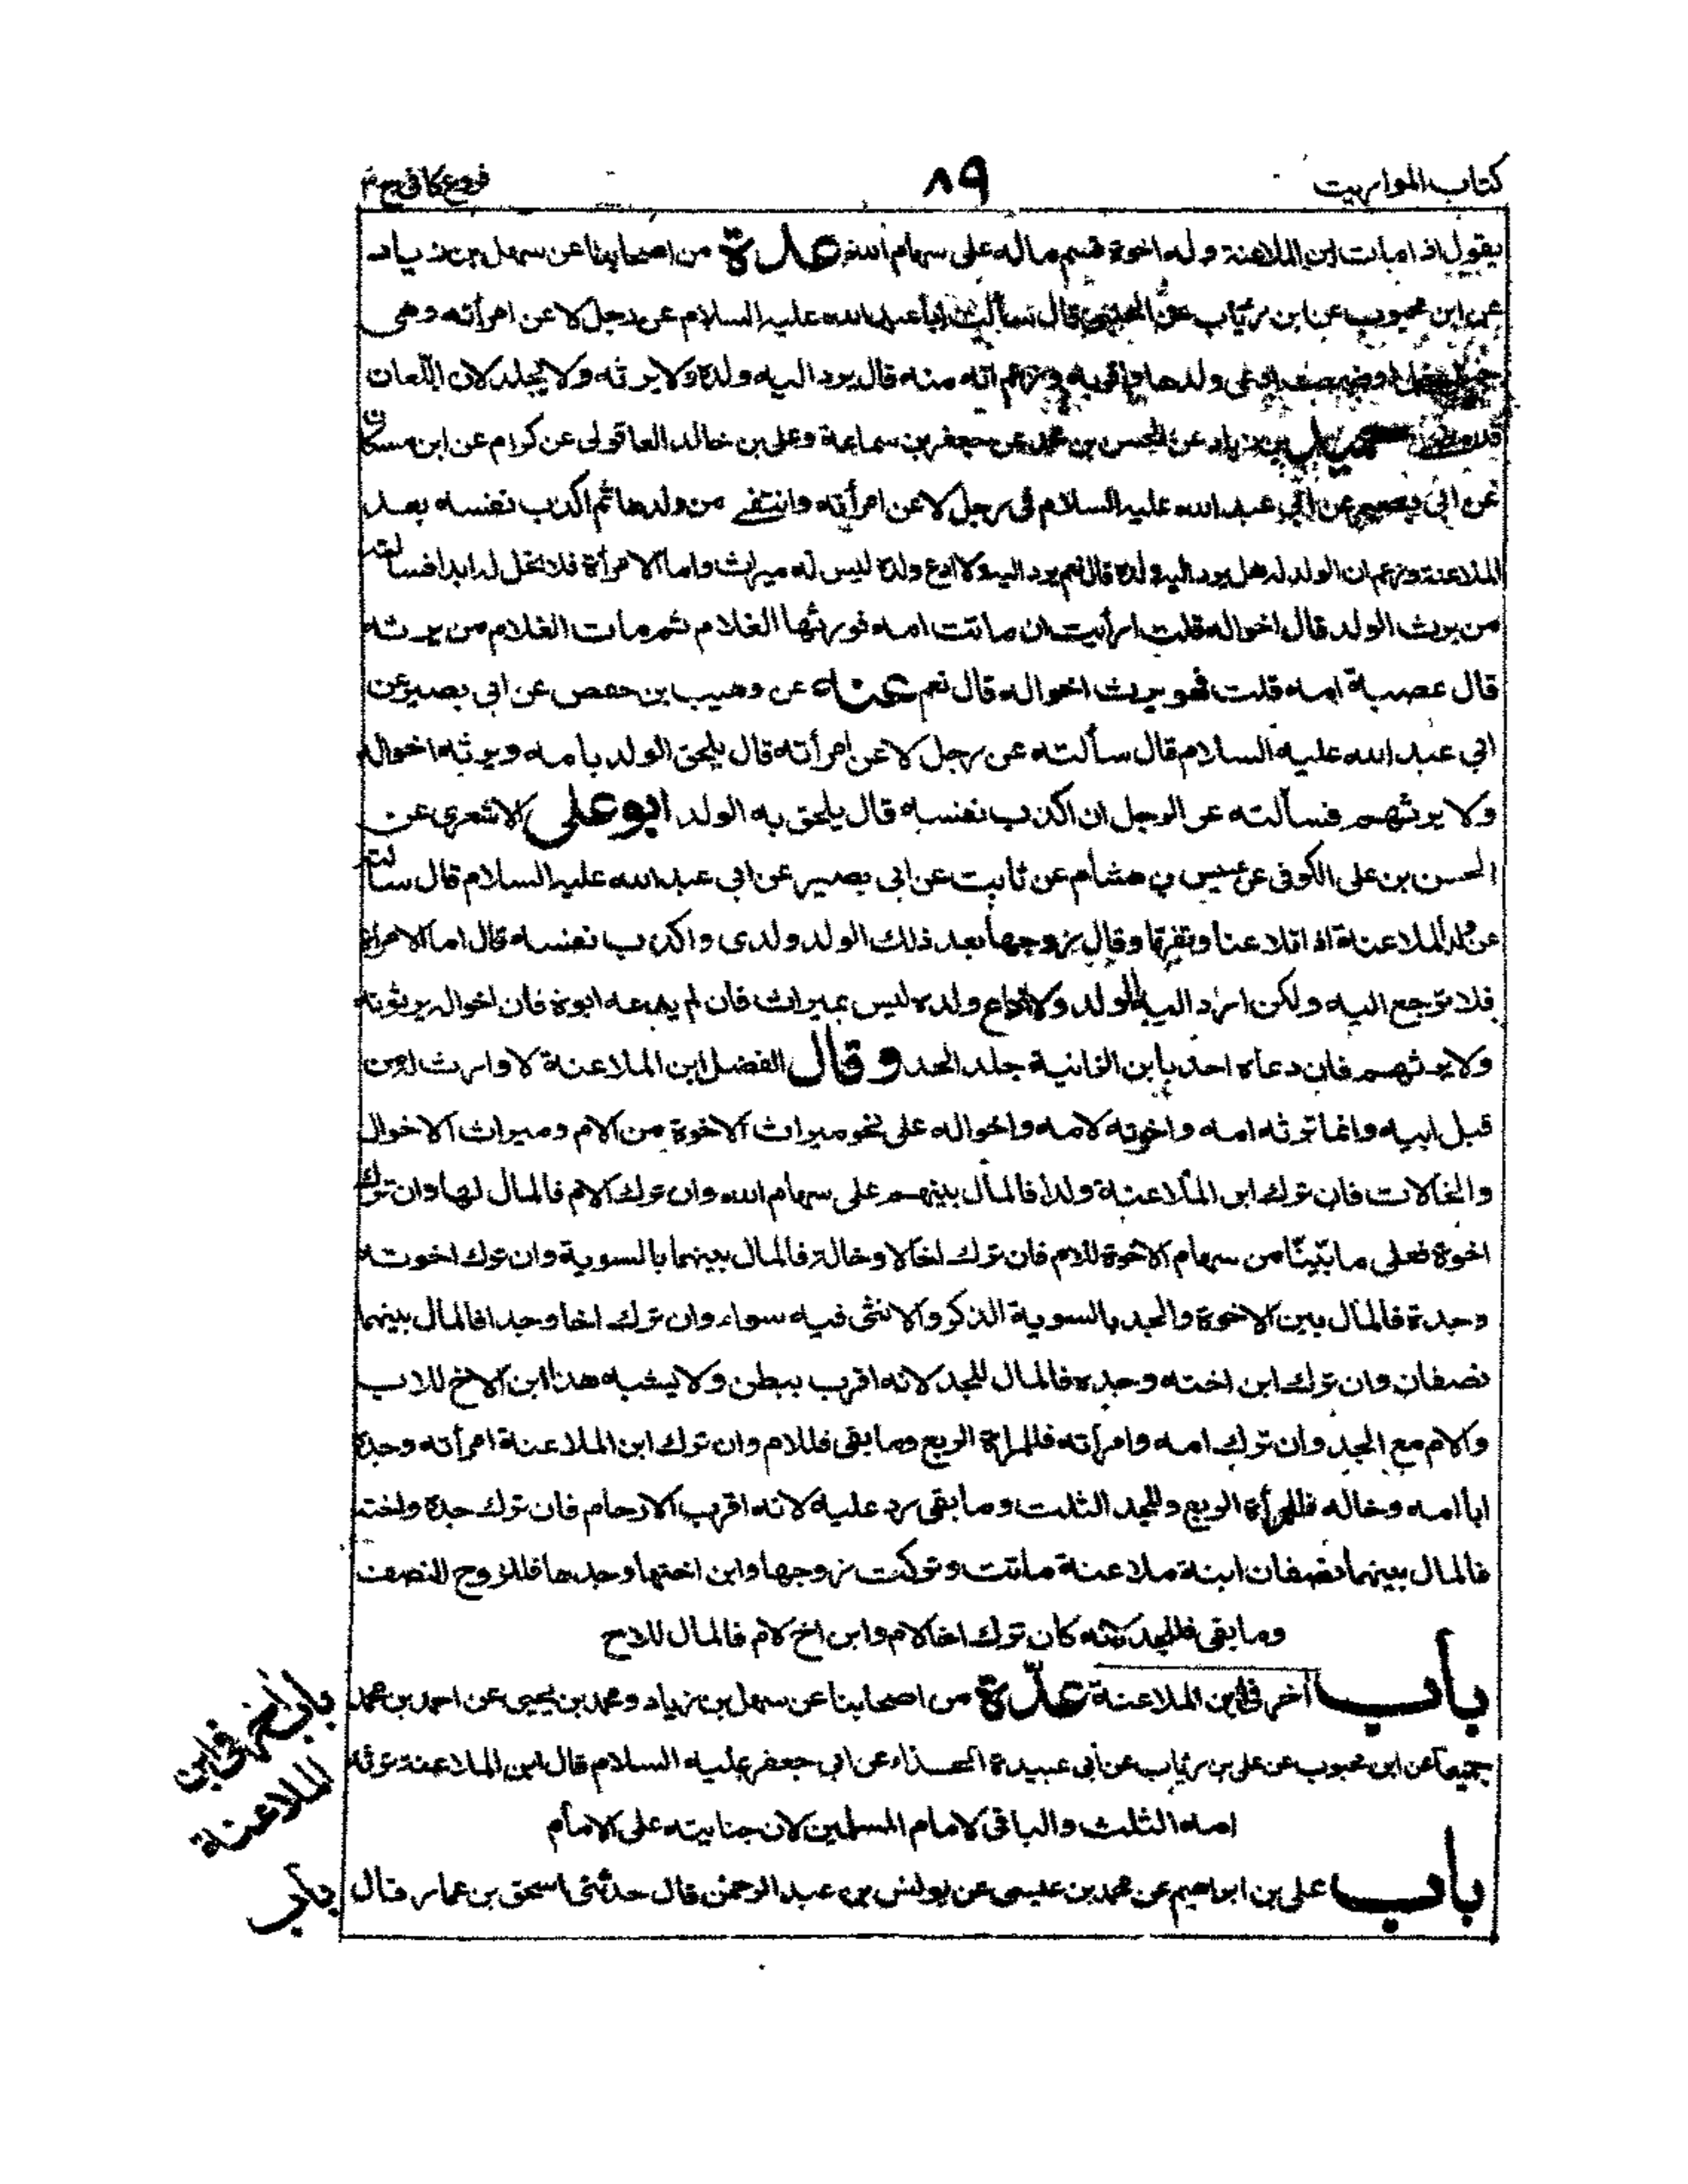 كتاب المواريث ٨٩ فروع كافى ج ٣
يقول اذا مات ابن الملاعنة وله اخوة قسم ماله على سهام الله عدة من اصحابنا عن سهل بن زياد
عن ابن محبوب عن ابن رئاب عن الحلبى قال سألت ابا عبد الله عليه السلام عن رجل لاعن امرأته وهى
ادعى ولدها واقربه وزعم انه منه قال يرد اليه ولده ولا يرثه ولا يجلد لان اللّعان
بن زياد عن الحسن بن محمد عن جعفر بن سماعة وعلى بن خالد العاقولى عن كرام عن ابن مسكان
عن ابى بصير عن ابي عبد الله عليه السلام فى رجل لاعن امرأته وانتفى من ولدها ثم اكذب نفسه بعد
الملاعنة وزعم ان الولد له هل يرد اليه ولده قال نعم يرد اليه ولا ادع ولده ليس له ميراث واما الامرأة فلا تحل له ابدا فسألته
من يرث الولد قال اخواله قلت ارأيت ان ماتت امه فورثها الغلام ثم مات الغلام من يرثه
قال عصبة امه قلت فهو يرث اخواله قال نعم عنه عن وهيب بن حفص عن ابي بصير عن
ابي عبد الله عليه السلام قال سألته عن رجل لاعن امرأته قال يلحق الولد بامه ويرثه اخواله
ولا يرثهم فسألته عن الرجل ان اكذب نفسه قال يلحق به الولد ابو على الاشعرى عن
الحسن بن على الكوفى عن عبيس بن هشام عن ثابت عن ابى بصير عن ابى عبد الله عليه السلام قال سألته
عن ولد الملاعنة اذا تلاعنا وتفرقا وقال زوجها بعد ذلك الولد ولدى واكذب نفسه قال اما الامرأة
فلا ترجع اليه ولكن ارد اليه الولد ولا ادع ولده ليس بميراث فان لم يدعه ابوه فان اخواله يرثونه
ولا يرثهم فان دعاه احد يا بن الزانية جلد الحد وقال الفضل ابن الملاعنة لا وارث له من
قبل ابيه وانما ترثه امه واخوته لامه واخواله على نحو ميراث الاخوة من الام وميراث الاخوال
والخالات فان ترك ابن الملاعنة ولدا فالمال بينهم على سهام الله وان ترك الام فالمال لها وان ترك
اخوة فعلى ما بيّنّا من سهام الاخوة للام فان ترك خالا وخالة فالمال بينهما بالسوية وان ترك اخوته
وجده فالمال بين الاخوة والجد بالسوية الذكر والانثى فيه سواء وان ترك اخا وجدا فالمال بينهما
نصفان وان ترك ابن اخته وجده فالمال للجد لانه اقرب ببطن ولا يشبه هذا ابن الاخ للاب
والام مع الجد وان ترك امه وامرأته فللمرأة الربع وما بقى فللام وان ترك ابن الملاعنة امرأته وجده
ابا امه وخاله فللمرأة الربع وللجد الثلث وما بقى رد عليه لانه اقرب الارحام فان ترك جدة واخته
فالمال بينهما نصفان ابنة ملاعنة ماتت وتركت زوجها وابن اختها وجدها فللزوج النصف
وما بقى فللجد لانه كان ترك اخا لام وابن اخ لام فالمال للاخ
باب آخر فى ابن الملاعنة عدّة من اصحابنا عن سهل بن زياد ومحمد بن يحيى عن احمد بن محمد
باب آخر فى ابن الملاعنة
جميعا عن ابن محبوب عن على بن رئاب عن أبى عبيدة الحذاء عن ابى جعفر عليه السلام قال ابن الملاعنة ترثه
امه الثلث والباقى لامام المسلمين لان جنايته على الامام
باب على بن ابراهيم عن محمد بن عيسى عن يونس بن عبد الرحمن قال حدثنى اسحق بن عمار قال
باب